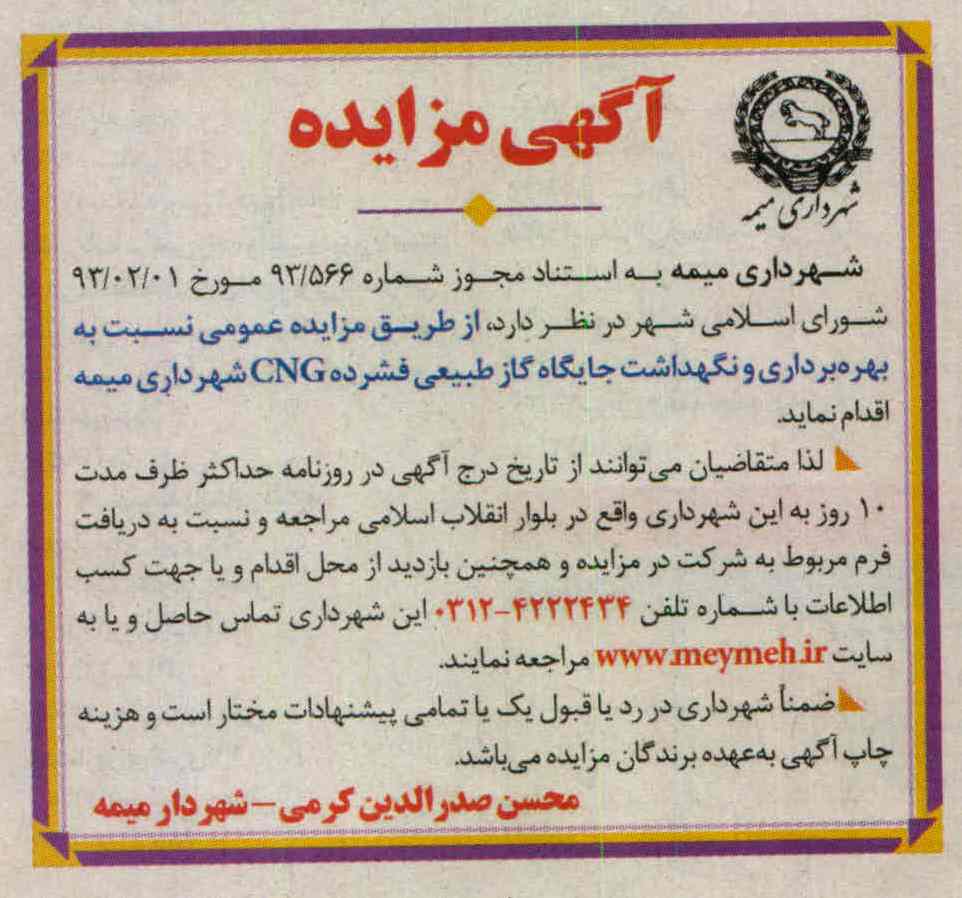 آگهی مزایده
شهرداری میمه
شهرداری میمه به استناد مجوز شماره ۹۳/۵۶۶ مورخ ۹۳/۰۲/۰۱
شورای اسلامی شهر در نظر دارد، از طریق مزایده عمومی نسبت به
بهره‌برداری و نگهداشت جایگاه گاز طبیعی فشرده CNG شهرداری میمه
اقدام نماید.
لذا متقاضیان می‌توانند از تاریخ درج آگهی در روزنامه حداکثر ظرف مدت
۱۰ روز به این شهرداری واقع در بلوار انقلاب اسلامی مراجعه و نسبت به دریافت
فرم مربوط به شرکت در مزایده و همچنین بازدید از محل اقدام و یا جهت کسب
اطلاعات با شماره تلفن ۴۲۲۲۴۳۴-۰۳۱۲ این شهرداری تماس حاصل و یا به
سایت www.meymeh.ir مراجعه نمایند.
ضمناً شهرداری در رد یا قبول یک یا تمامی پیشنهادات مختار است و هزینه
چاپ آگهی به‌عهده برندگان مزایده می‌باشد.
محسن صدرالدین کرمی – شهردار میمه